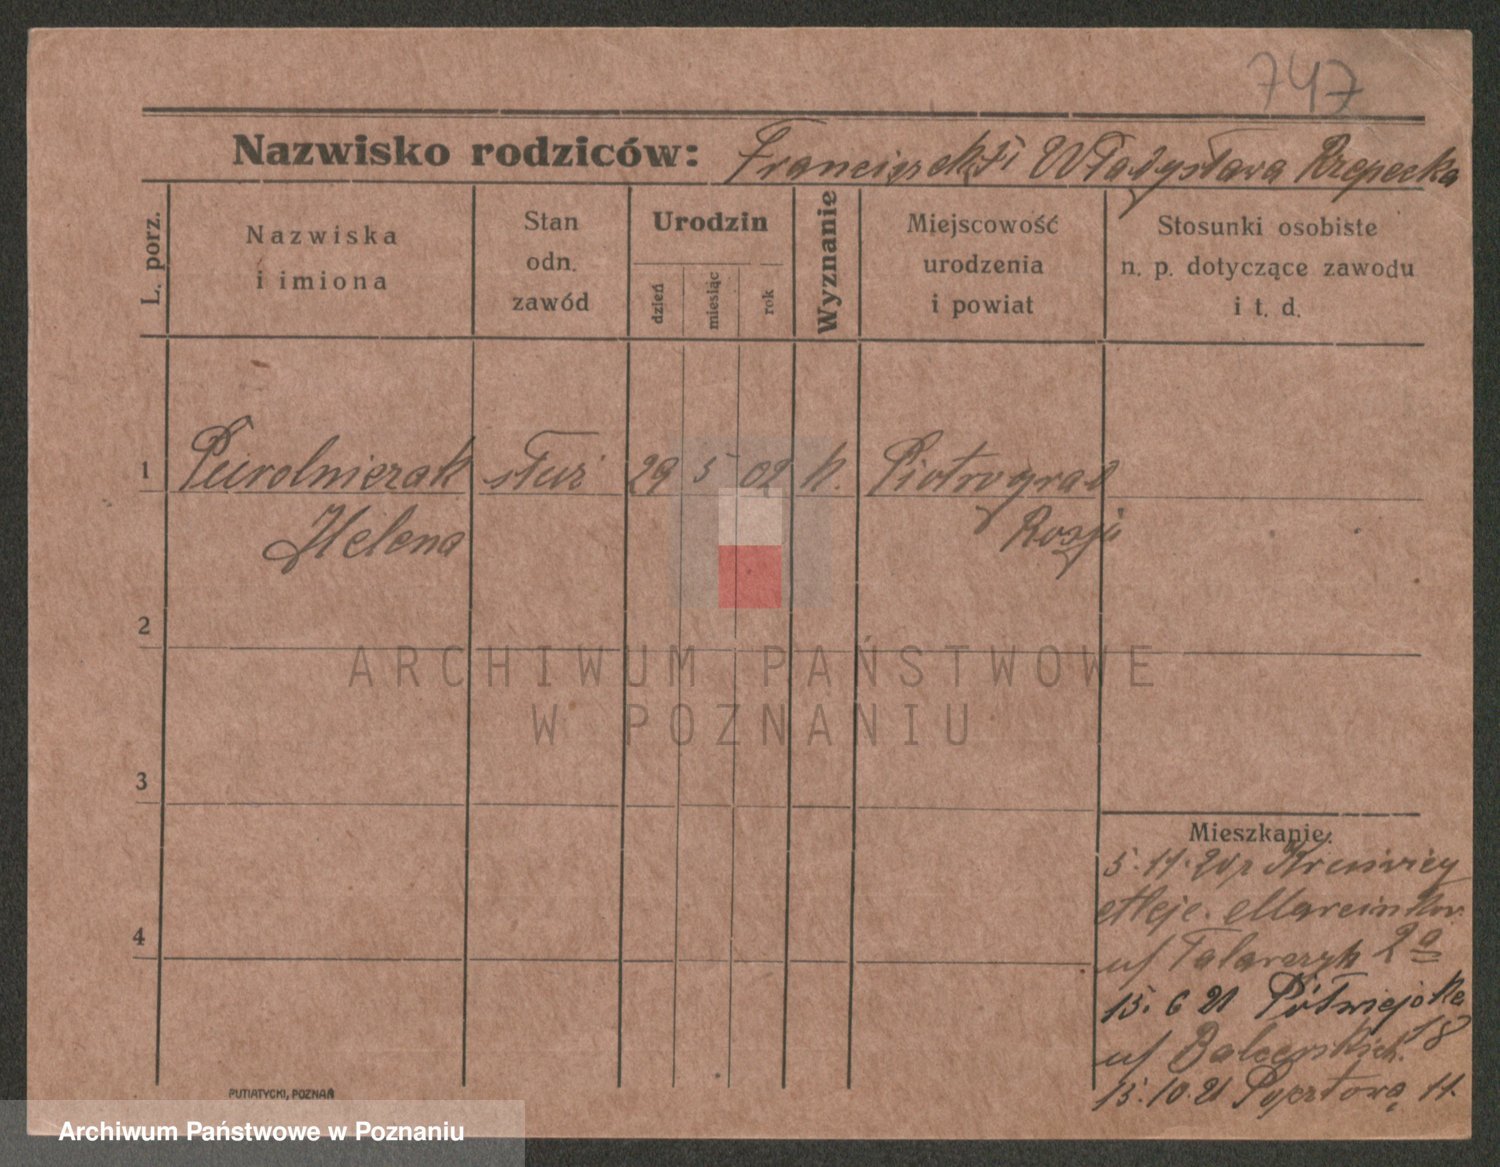 747
Nazwisko rodziców: Franciszek i Władysława Rzepecka
L. porz.
Nazwiska
i imiona
Stan
odn.
zawód
Urodzin
dzień
miesiąc
rok
Wyznanie
Miejscowość
urodzenia
i powiat
Stosunki osobiste
n. p. dotyczące zawodu
i t. d.
1 służ 29 5 02 k. Piotrograd
Helena Rosji
2
3
4
Mieszkanie:
5. 11. 20 z Kruświcy
Aleje. Marcinkow.
u/ Talarczyk 2a
15. 6 21 Półwiejska
u/ 18
15. 10. 21 11.
PUTIATYCKI, POZNAŃ
ARCHIWUM PAŃSTWOWE
W POZNANIU
Archiwum Państwowe w Poznaniu